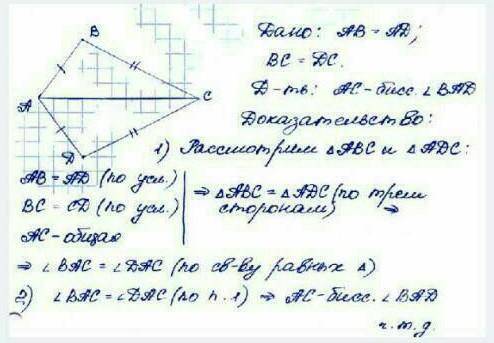 B
A
C
D
Дано: AB = AD;
BC = DC.
Д-ть: AC - бисс. ∠BAD
Доказательство:
1) Рассмотрим △ABC и △ADC:
AB = AD (по усл.)
BC = CD (по усл.)
AC - общая
⇒ △ABC = △ADC (по трем
сторонам) ⇒
⇒ ∠BAC = ∠DAC (по св-ву равных △)
2) ∠BAC = ∠DAC (по п. 1) ⇒ AC - бисс. ∠BAD
ч.т.д.